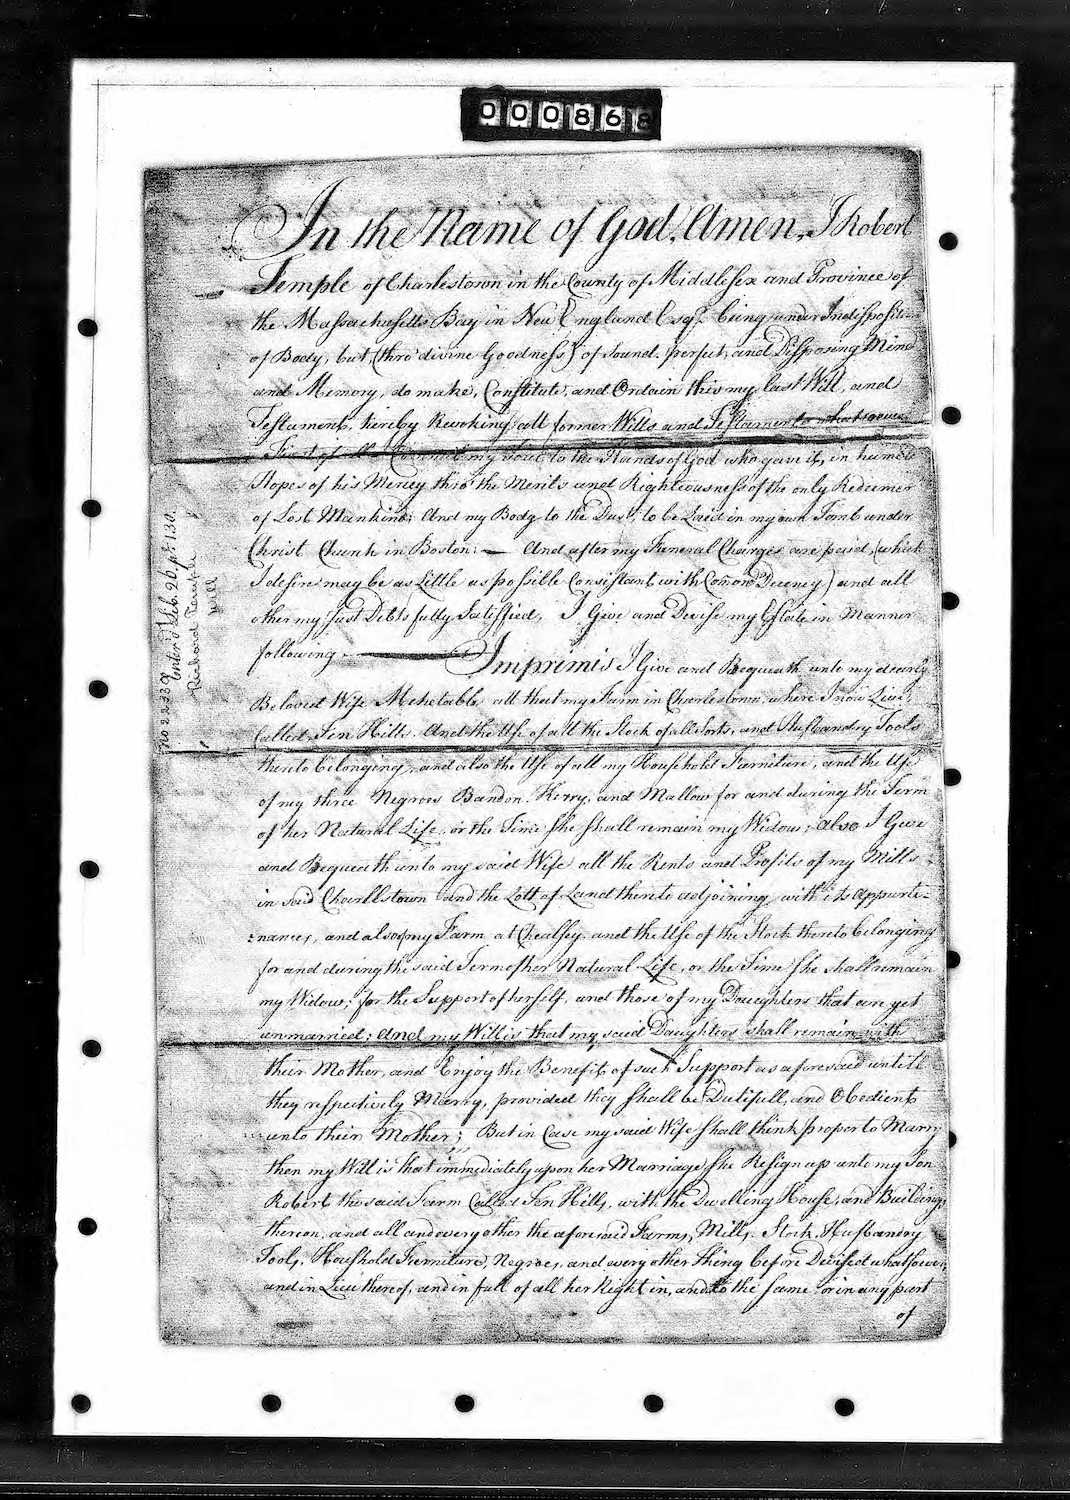 000868
In the Name of God, Amen, I Robert
Temple of Charlestown in the County of Middlesex and Province of
the Massachusetts Bay in New England Esqr. being under Indisposition
of Body, but (thro' divine Goodness) of sound, perfect, and Disposing Mind
and Memory, do make, Constitute, and Ordain this my last Will, and
Testament, hereby Revoking all former Wills and Testaments whatsoever
First of all I my Soul to the Hands of God who gave it, in humble
Hopes of his Mercy thro' the Merits and Righteousness of the only Redeemer
of Lost Mankind; And my Body to the Dust, to be Laid in my own Tomb under
Christ Church in Boston: — And after my Funeral Charges are paid, (which
I desire may be as Little as possible Consistant with Comon Decency) and all
other my Just Debts fully Satisfied, I Give and Devise my Estate in Manner
following — Imprimis I Give and Bequeath unto my dearly
Beloved Wife Mehetable all that my Farm in Charlestown, where I now Live,
Called Ten Hills, And the Use of all the Stock of all Sorts, and Husbandry Tools
thereto belonging, and also the Use of all my Household Furniture, and the Use
of my three Negroes Bandon, Kerry, and Mallow for and during the Term
of her Natural Life, or the Time She shall remain my Widow; also I Give
and Bequeath unto my said Wife all the Rents and Profits of my Mills
in said Charlestown and the Lott of Land thereto adjoining, with its Appurte-
:nances, and also my Farm at Chealsey, and the Use of the Stock thereto belonging
for and during the said Term of her Natural Life, or the Time She shall remain
my Widow; for the Support of herself, and those of my Daughters that are yet
unmarried; And my Will is that my said Daughters shall remain with
their Mother, and Enjoy the Benefit of such Support as aforesaid untill
they respectively Marry, provided they shall be Dutifull, and Obedient
unto their Mother; But in Case my said Wife shall think proper to Marry
then my Will is that immediately upon her Marriage She Resign up unto my Son
Robert the said Farm Called Ten Hills, with the Dwelling House, and Buildings
thereon, and all and every other the aforesaid Farms, Mills, Stock, Husbandry
Tools, Houshold Furniture, Negroes, and every other thing before Devised whatsoever,
and in Lieu thereof, and in full of all her Right in, and to the same or in any part
of
No 22339
Enter'd Lib. 20. p. 130.
Will